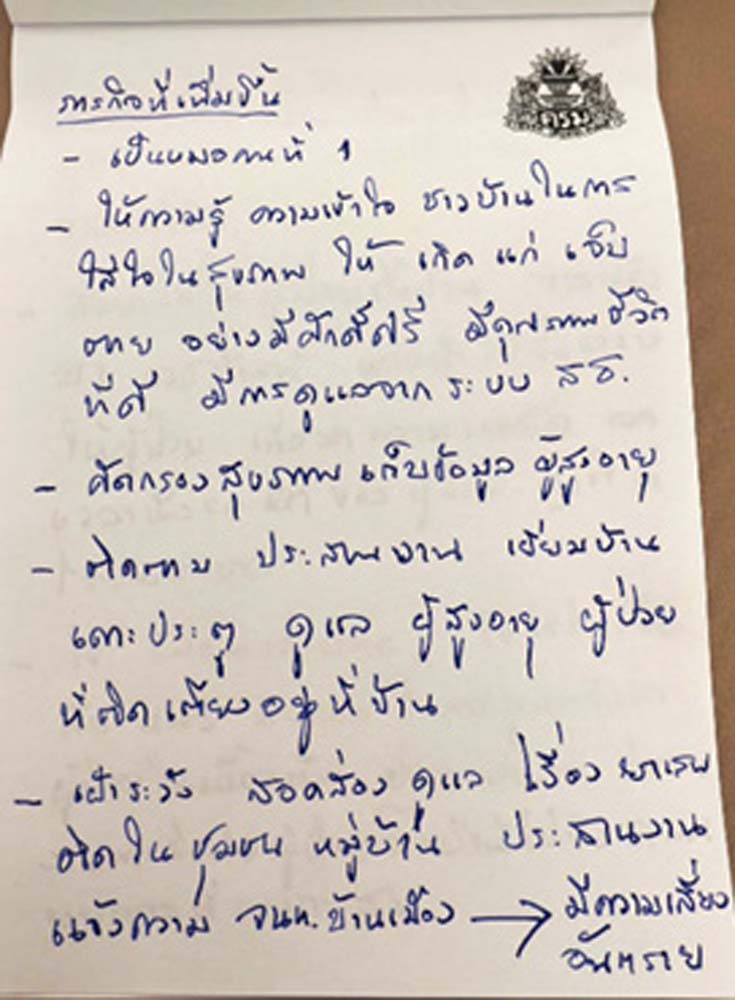 ภารกิจที่เพิ่มขึ้น
ครม
- เป็นหมอคนที่ 1
- ให้ความรู้ ความเข้าใจ ชาวบ้านในการ
ใส่ใจในสุขภาพ ให้ เกิด แก่ เจ็บ
ตาย อย่างมีศักดิ์ศรี มีคุณภาพชีวิต
ที่ดี มีการดูแลจาก ระบบ สธ.
- คัดกรองสุขภาพ เก็บข้อมูล ผู้สูงอายุ
- ติดตาม ประสานงาน เยี่ยมบ้าน
เคาะประตู ดูแล ผู้สูงอายุ ผู้ป่วย
ที่ติดเตียงอยู่ที่บ้าน
- เฝ้าระวัง สอดส่อง ดูแล เรื่อง ยาเสพ
ติดใน ชุมชน หมู่บ้าน ประสานงาน
แจ้งความ จนท. บ้านเมือง → มีความเสี่ยง
อันตราย